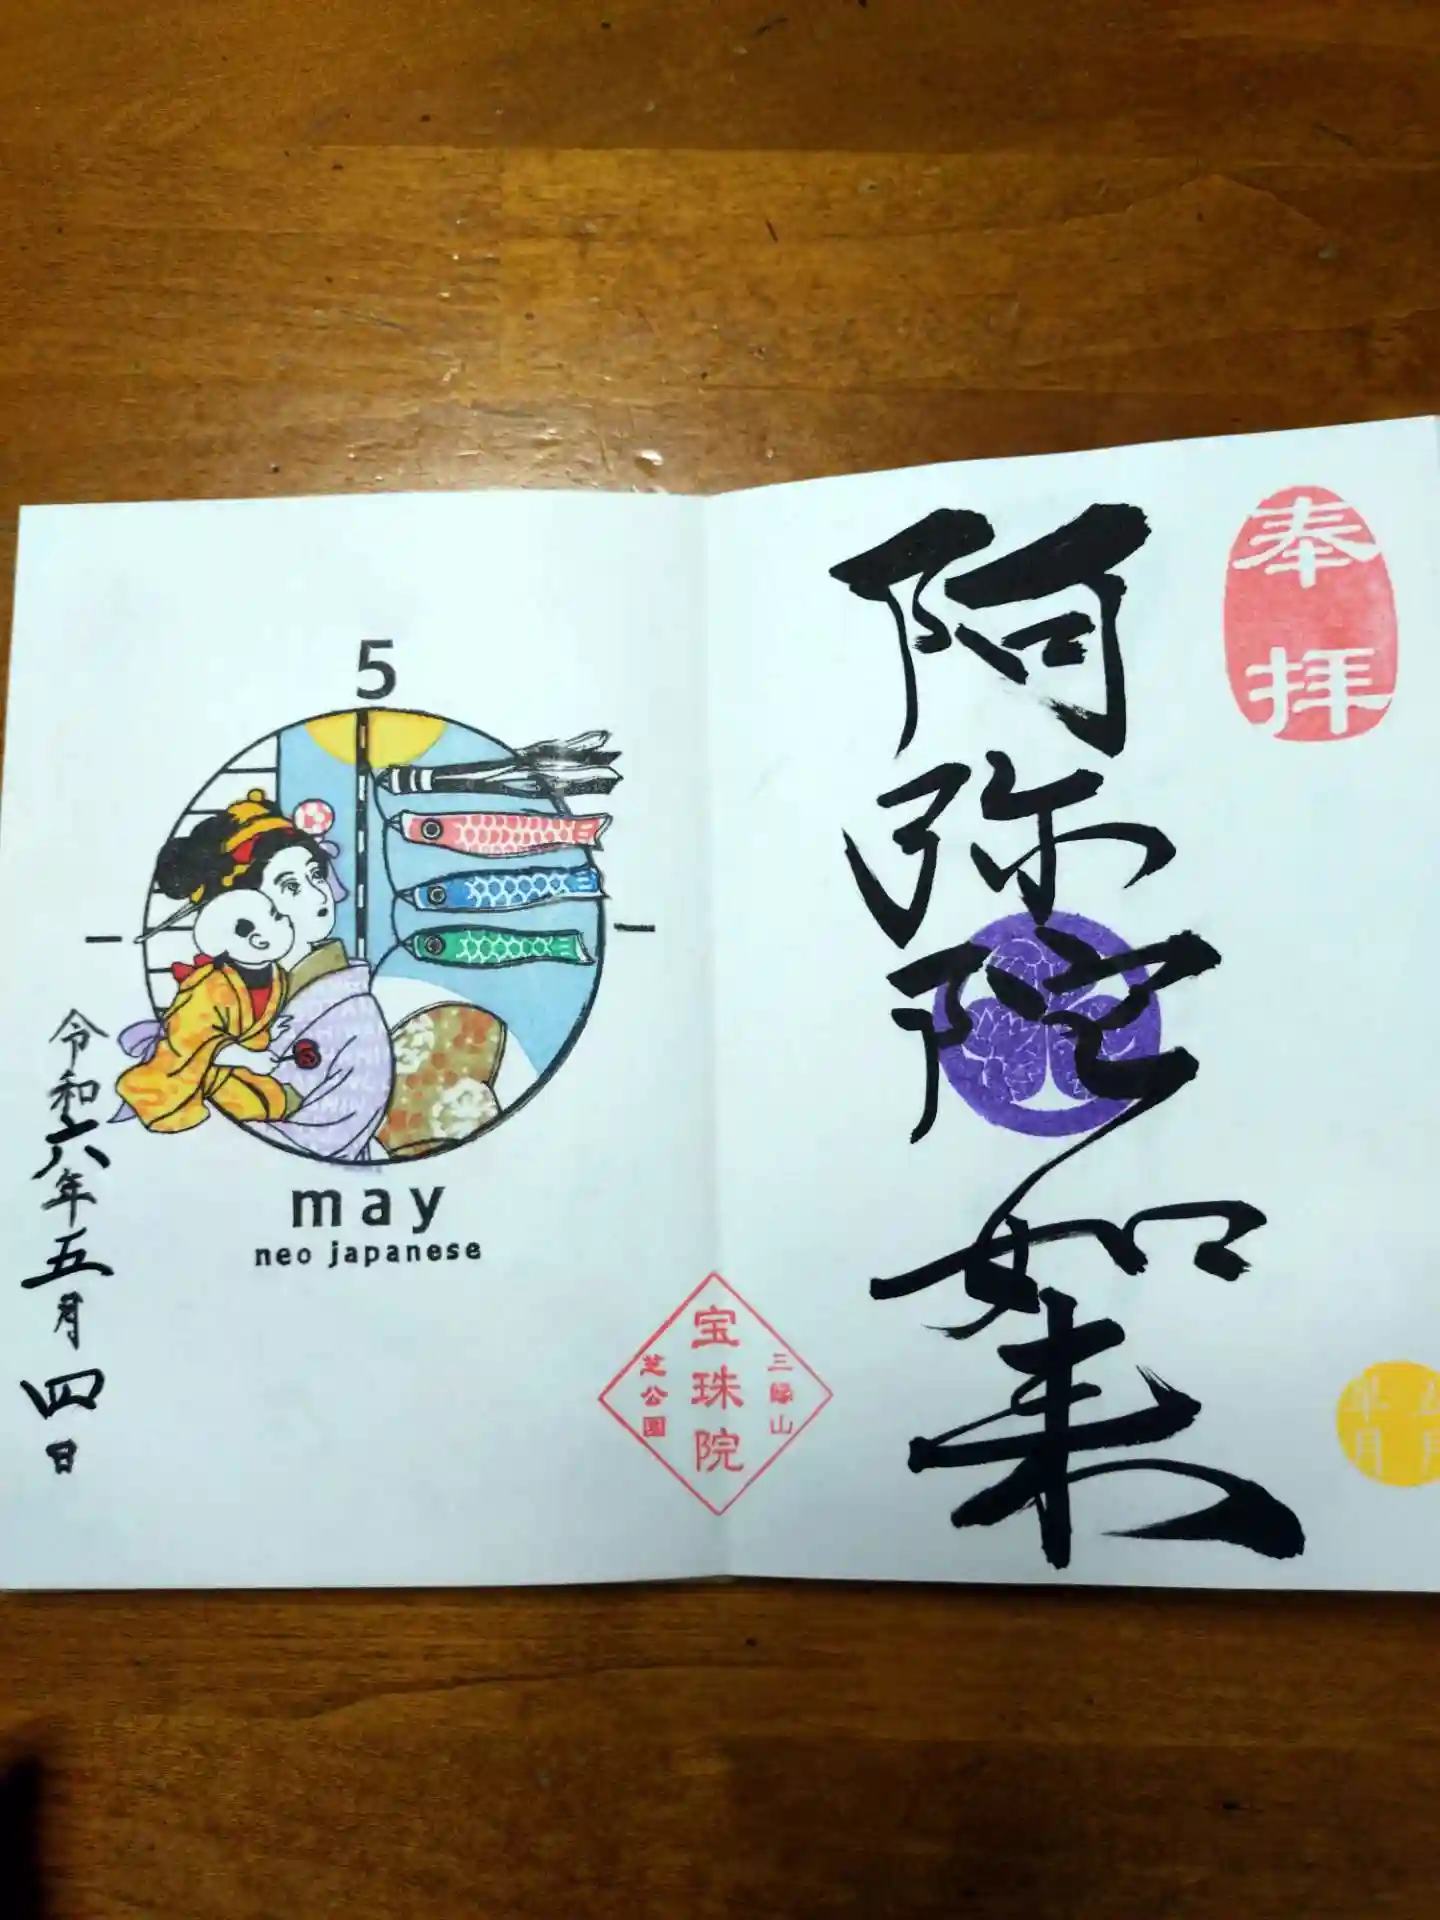 奉拝
阿弥陀如来
三縁山
宝珠院
芝公園
5
may
neo japanese
令和六年五月四日